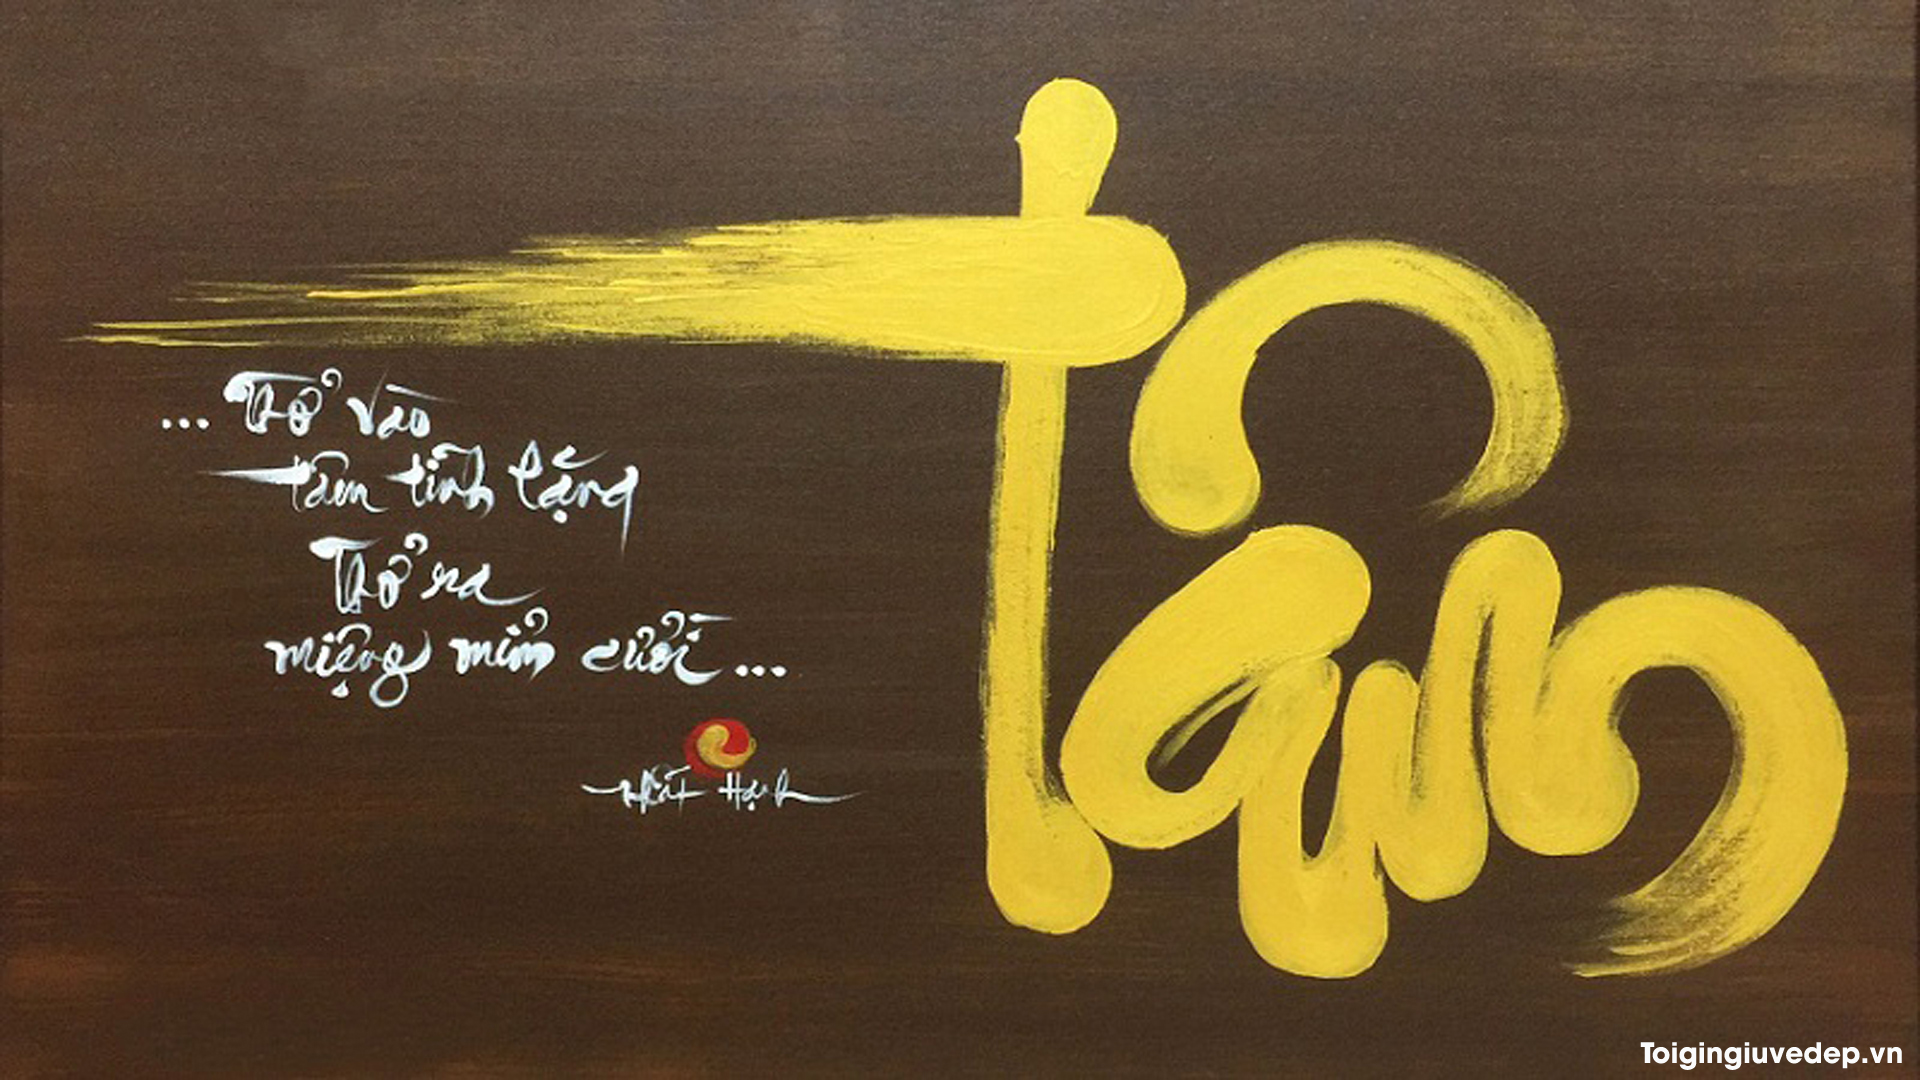 ... Thở vào
tâm tĩnh lặng
Thở ra
miệng mỉm cười ...
Nhất Hạnh
Tâm
Toigingiuvedep.vn